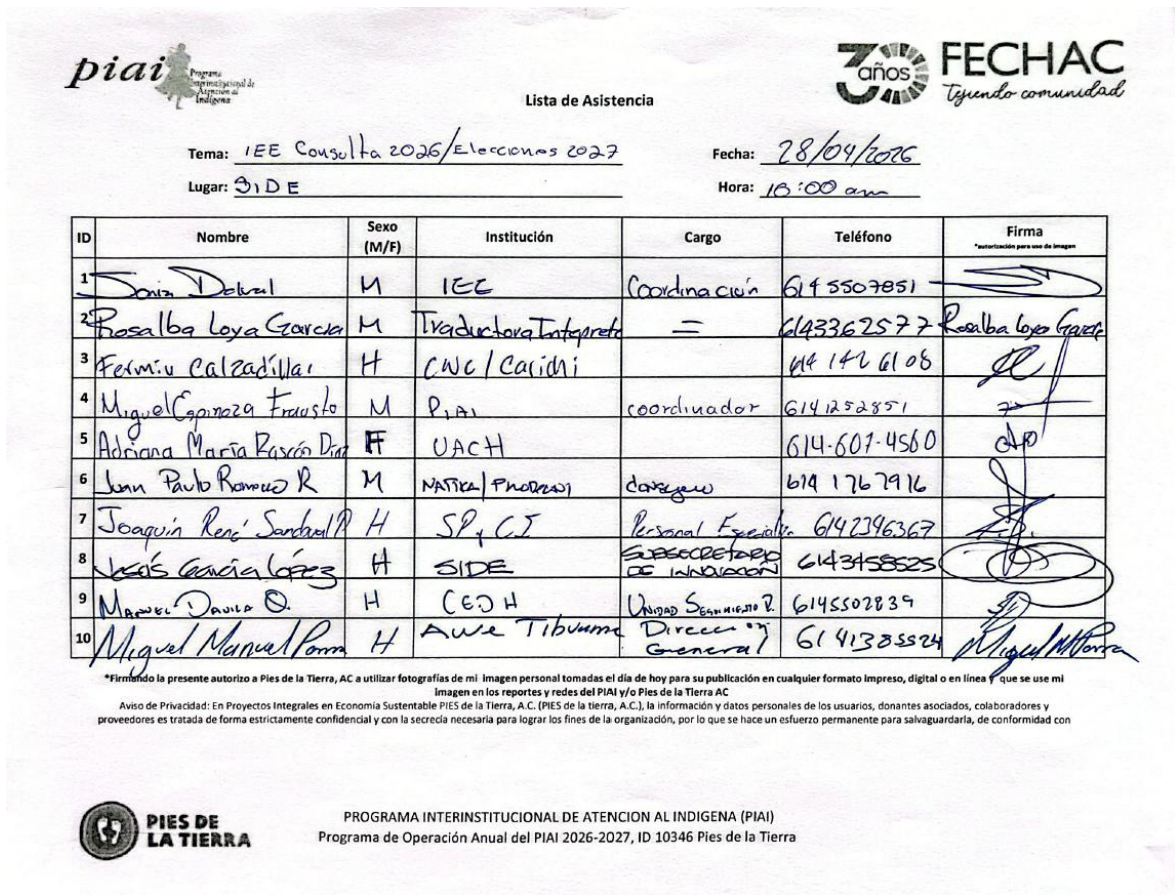 piai
Programa
Interinstitucional de
Atención al
Indígena
30 años
FECHAC
Tejiendo comunidad
Lista de Asistencia
Tema: IEE Consulta 2026/Elecciones 2027
Fecha: 28/04/2026
Lugar: SIDE
Hora: 10:00 am
ID Nombre Sexo (M/F) Institución Cargo Teléfono Firma
*autorización para uso de imagen
1 Sonia M IEE Coordinación 614 5507851
2 Rosalba Loya Garcia M Traductora Inteprete = 6143362577 Rosalba Loya Garcia
3 Fermin Calzadillas H CNC/ 614 142 6108
4 Miguel Espinoza Frausto M PIAI coordinador 6141252851
5 Adriana María Rascón Díaz F UACH 614-601-4560
6 Juan Pablo Romero R M 614 1767916
7 Joaquín René Sandoval P H SPyCI Personal Especializ. 6142396367
8 Jesús García López H SIDE SUBSECRETARIO DE INNOVACIÓN 6143458525
9 Manuel Davila O. H CEDH Unidad Seguimiento R. 6145502839
10 Miguel Manuel Parra H Awe Tibuame Director General 6141385524 Miguel M Parra
*Firmando la presente autorizo a Pies de la Tierra, AC a utilizar fotografías de mi imagen personal tomadas el día de hoy para su publicación en cualquier formato impreso, digital o en línea y que se use mi
imagen en los reportes y redes del PIAI y/o Pies de la Tierra AC
Aviso de Privacidad: En Proyectos Integrales en Economía Sustentable PIES de la Tierra, A.C. (PIES de la tierra, A.C.), la información y datos personales de los usuarios, donantes asociados, colaboradores y
proveedores es tratada de forma estrictamente confidencial y con la secrecía necesaria para lograr los fines de la organización, por lo que se hace un esfuerzo permanente para salvaguardarla, de conformidad con
PIES DE
LA TIERRA
PROGRAMA INTERINSTITUCIONAL DE ATENCION AL INDIGENA (PIAI)
Programa de Operación Anual del PIAI 2026-2027, ID 10346 Pies de la Tierra